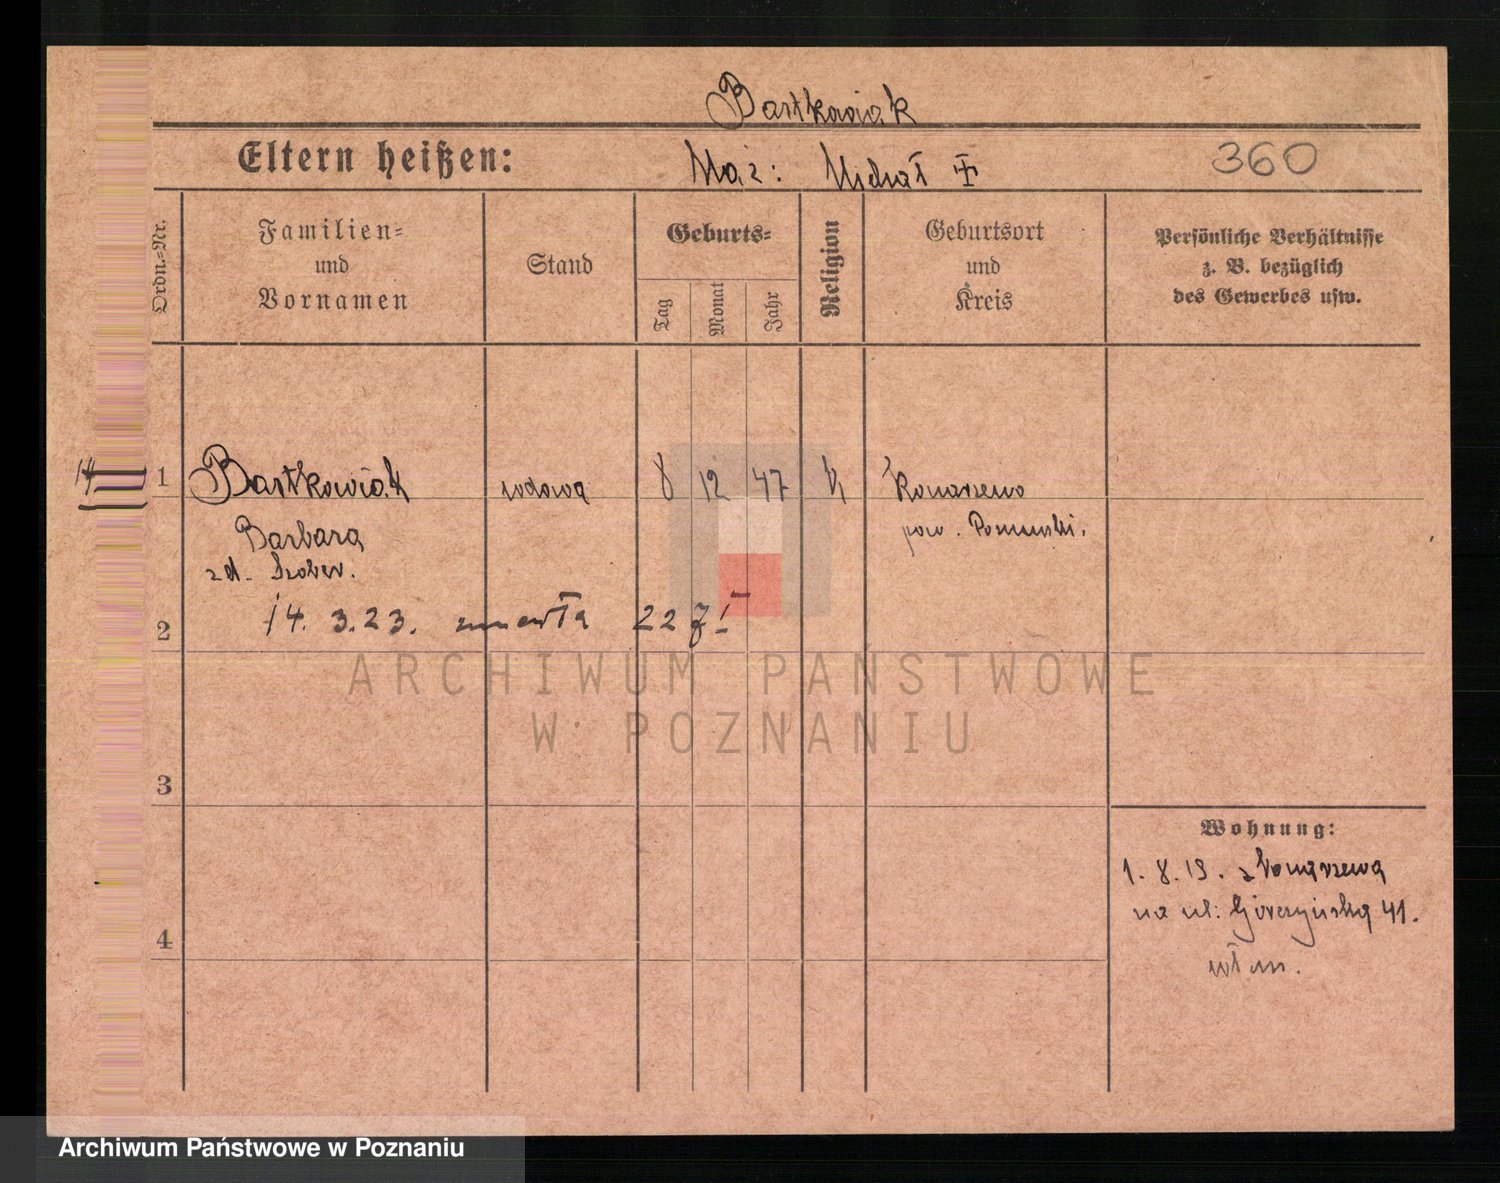 Bartkowiak
Eltern heißen: Mąż: Michał ‡ 360
Ordn.=Nr.
Familien=
und
Vornamen
Stand
Geburts=
Tag
Monat
Jahr
Religion
Geburtsort
und
Kreis
Persönliche Verhältnisse
z. B. bezüglich
des Gewerbes usw.
1 Bartkowiak wdowa 8 12 47 k Konarzewo
Barbara pow. Poznański.
zd.
2 14. 3.23. zmarła 22
ARCHIWUM PAŃSTWOWE
W POZNANIU
3
Wohnung:
1. 8. 19. z Konarzewa
na ul: Górczyńską 41.
4
Archiwum Państwowe w Poznaniu